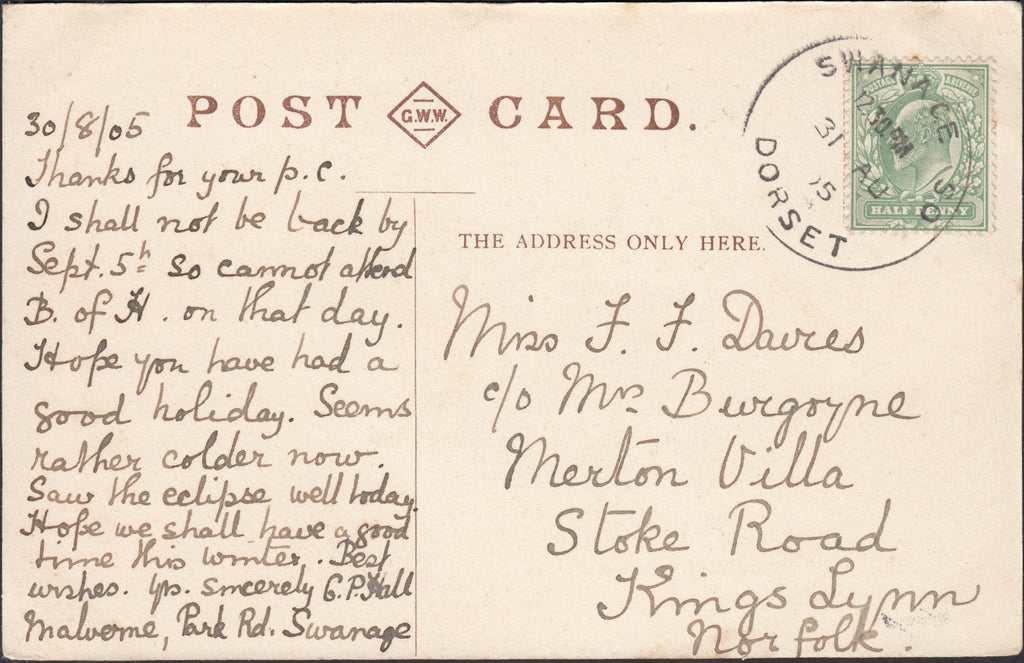 POST G.W.W. CARD.
30/8/05
Thanks for your p.c.
I shall not be back by
Sept. 5th so cannot attend
B. of H. on that day.
Hope you have had a
good holiday. Seems
rather colder now.
Saw the eclipse well today.
Hope we shall have a good
time this winter. Best
wishes. Yrs. sincerely G.P. Hall
Malverne, Park Rd. Swanage
THE ADDRESS ONLY HERE.
Miss F. F. Davies
c/o Mrs Burgoyne
Merton Villa
Stoke Road
Kings Lynn
Norfolk.
SWANAGE S.O
12.30 PM
31 AU
05
DORSET
POSTAGE REVENUE
HALF PENNY